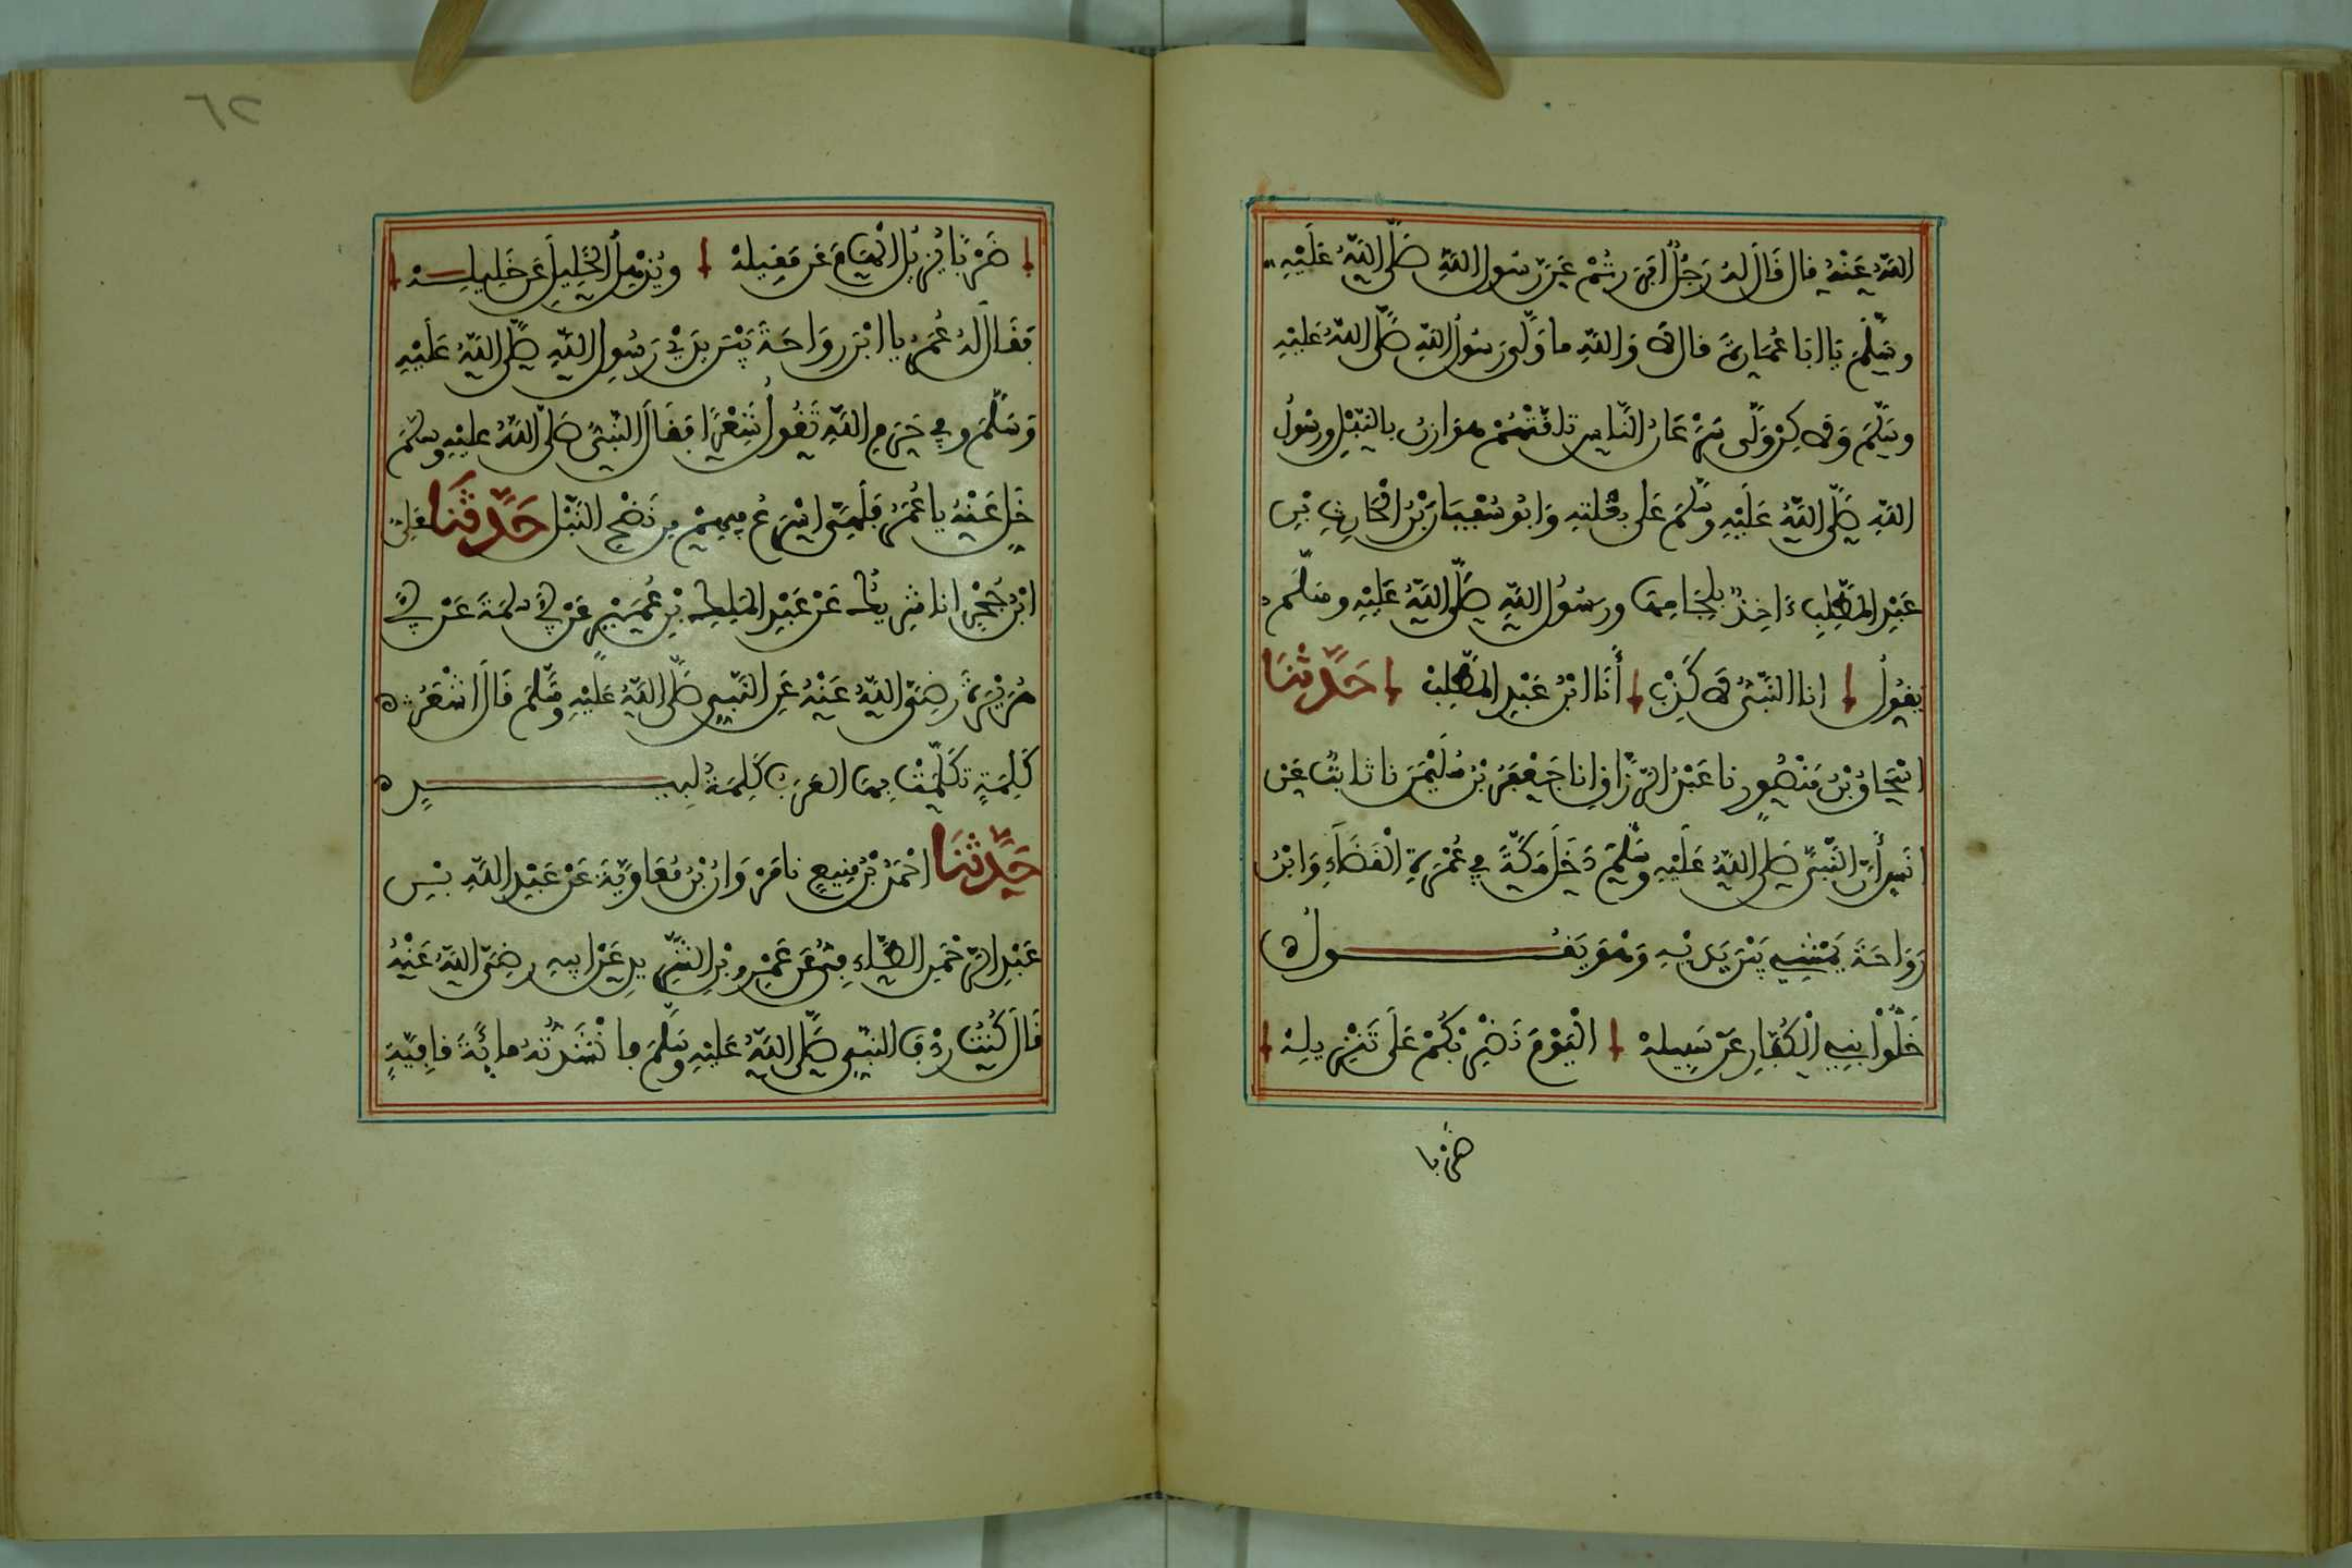 اللهُ عَنْهُ قال قَالَ لهُ رَجُلٌ أَفَرَرْتُمْ عَن رَسُول اللهِ صَلَّى اللهُ عَلَيْهِ
وسَلَّمَ يَا ابَا عُمَارةَ قال لا وَاللهِ ما وَلَّى رَسُولُ اللهِ صَلَّى اللهُ عَلَيْهِ
وسَلَّمَ وَلاكِنْ وَلَّى سَرْعَانُ النَّاسِ تلقَّتْهُمْ هوَازنُ بالنَّبْلِ ورسُولُ
اللهِ صَلَّى اللهُ عَلَيْهِ وسَلَّمَ عَلَى بغْلتهِ وَابُو سُفْيَانَ بْنُ الْحَارِثِ بْنِ
عَبْدِ المطَّلِبِ ءَاخِذٌ بِلِجَامِهَا ورَسُولُ اللهِ صَلَّى اللهُ عَلَيْهِ وسَلَّمَ
يَقُولُ انا النَّبيُّ لا كَذِبْ أَنَا ابْنُ عَبْدِ المطَّلِبْ حَدَّثَنَا
اسْحَاقُ بْنُ مَنْصُورٍ نا عَبْدُ الرَّزَّاقِ انا جَعْفَرُ بْنُ سُلَيْمَنَ نا ثابتٌ عَنْ
انَسٍ أَنَّ النَّبيَّ صَلَّى اللهُ عَلَيْهِ وسَلَّمَ دَخَلَ مَكَّةَ فِي عُمْرَةِ الْقَضَاءِ وَابْنُ
رَوَاحَةَ يَمْشِي بَيْنَ يَدَيْهِ وَهُوَ يَقُــــــــولُ ه
خَلُّوْا بنِي الْكُفَّارِ عَنْ سَبِيلهْ الْيَوْمَ نَضْرِبْكُمْ عَلَى تَنْزِيلِهْ
ضَرْبًا
ضَرْبًا يُزِيلُ الْهَامَ عَن مَقِيلهْ ويُذْهِلُ الْخَلِيلَ عَن خَلِيلِـــهْ
فقَالَ لهُ عُمَرُ يا ابْنَ روَاحَةَ بَيْنَ يدَيْ رَسُولِ اللهِ صَلَّى اللهُ عَلَيْهِ
وَسَلَّمَ وفِي حَرَمِ اللهِ تَقُولُ شِعْرًا فقَالَ النَّبيُّ صَلَّى اللهُ عليْهِ وسلَّمَ
خَلِّ عَنْهُ يا عُمَرُ فَلَهِيَ اسْرَعُ فِيهِمْ مِن نَضْحِ النَّبْلِ حَدَّثَنَا علِيُّ
ابْنُ حُجْرٍ انا شرِيكٌ عَنْ عَبْدِ الملِكِ بْنِ عُمَيْرٍ عَنْ أبي سلمَةَ عَنْ أبي
هُرَيْرَةَ رضِيَ اللهُ عَنْهُ عَنِ النَّبِيِّ صَلَّى اللهُ عَلَيْهِ وسَلَّمَ قَالَ اشْعَرُ ه
كَلِمَةٍ تكَلَّمَتْ بهَا العَرَبُ كَلِمَةُ لبِيـــــــــدٍ ه
حَدَّثَنَا احْمَدُ بْنُ مَنِيعٍ نا مَرْوَانُ بْنُ مُعَاوِيَةَ عَنْ عَبْدِ اللهِ بْنِ
عَبْدِ الرَّحْمَنِ الطَّاءِفِيِّ عَن عَمْرِو بْنِ الشَّرِيدِ عَنْ ابِيهِ رضِيَ اللهُ عَنْهُ
قَالَ كُنْتُ رِدْفَ النَّبِيِّ صَلَّى اللهُ عَلَيْهِ وسَلَّمَ فأنْشَدْتُهُ مائَةَ قافِيَةٍ